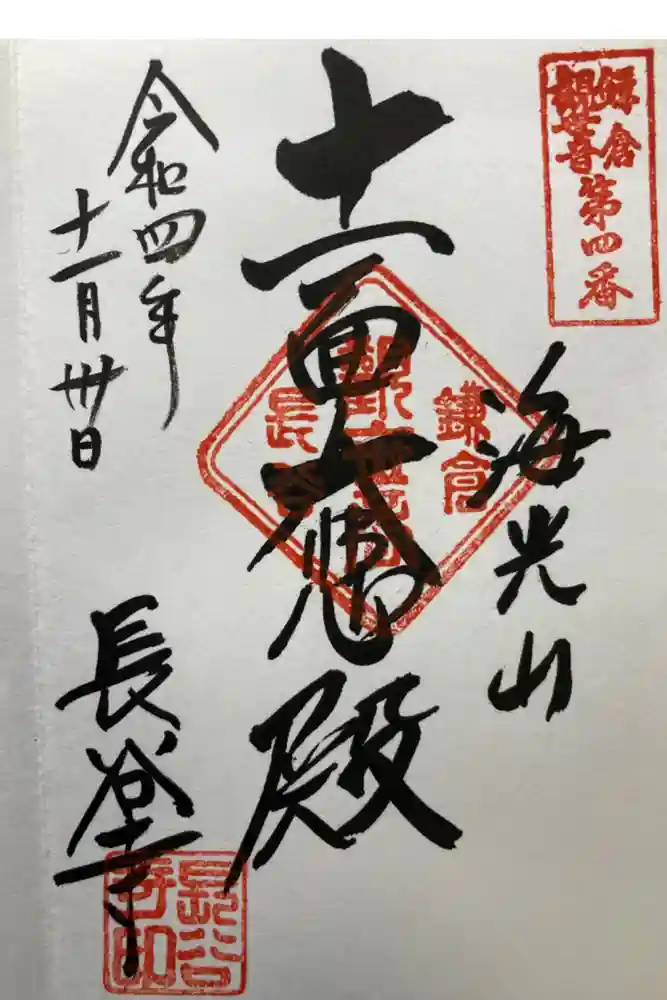 鎌倉
觀世音
第四番
海光山
鎌倉
長谷
十一面大悲殿
令和四年
十一月卅日
長谷寺
長谷
寺印